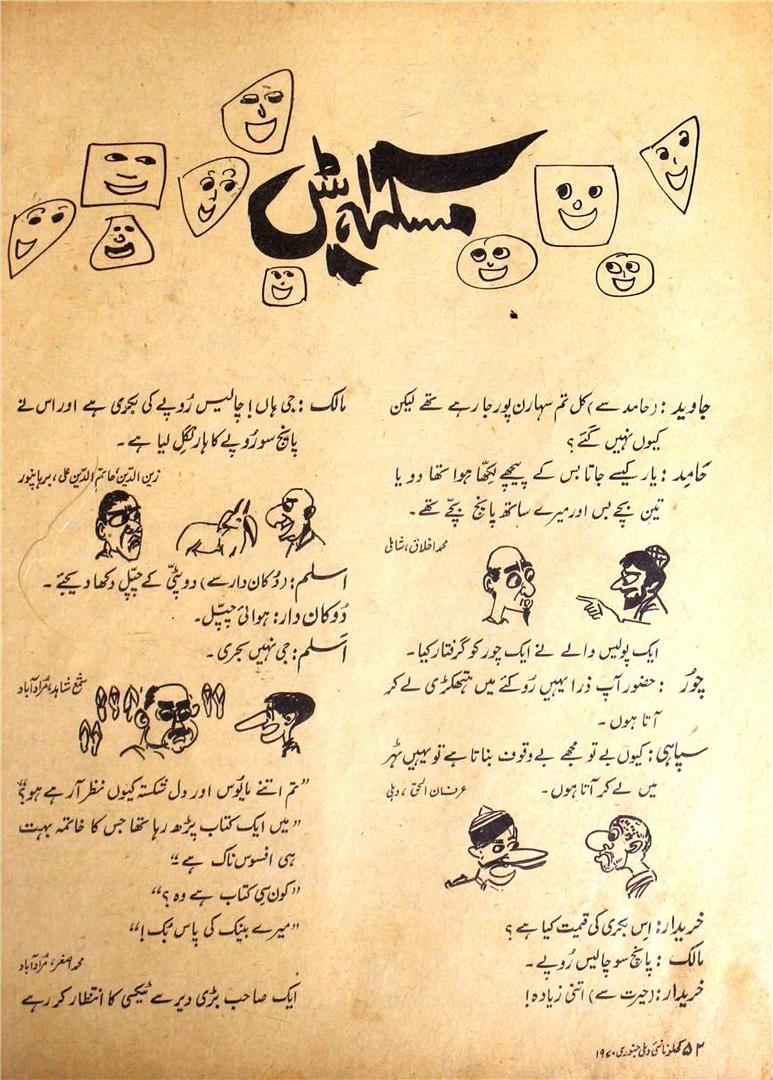 مسکراہٹیں
جاوید : (حامد سے) کل تم سہارن پور جا رہے تھے لیکن
کیوں نہیں گئے ؟
حَامِد : یار کیسے جاتا بس کے پیچھے لکھّا ہوا تھا دو یا
تین بچّے بس اور میرے ساتھ پانچ بچّے تھے۔
محمد اخلاق، شاملی
ایک پولیس والے نے ایک چور کو گرفتار کیا۔
چورُ : حضور آپ ذرا یہیں رُوکئے میں ہتھکڑی لے کر
آتا ہوں ۔
سپاہی : کیوں بے تو مجھے بے وقوف بناتا ہے تو یہیں ٹھہر
میں لے کر آتا ہوں۔
عرفان الحق ، دہلی
خریدار: اِس بکری کی قیمت کیا ہے ؟
مالک : پانچ سو چالیس رُوپے ۔
خریدار : (حیرت سے) اتنی زیادہ !
مالک : جی ہاں ! چالیس رُوپے کی بکری ہے اور اس نے
پانچ سو رُوپے کا ہار نگل لیا ہے ۔
زین الدین حاتم الدین علی ، برہانپور
اسلم : (دُکان دار سے) دو پٹّی کے چپّل دکھا دیجئے ۔
دُوکان دار : ہوائی چپّل۔
اَسلم : جی نہیں بحری ۔
شمع شاہد، مُرادآباد
”تم اتنے مایُوس اور دل شکستہ کیوں نظر آ رہے ہو؟“
”میں ایک کتاب پڑھ رہا تھا جس کا خاتمہ بہت
ہی افسوس ناک ہے ۔“
”کون سی کتاب ہے وہ ؟“
”میرے بینک کی پاس بُک !“
محمد اصغر، مُرادآباد
ایک صاحب بڑی دیر سے ٹیکسی کا انتظار کر رہے
۵۲ کھلونا نئی دہلی جنوری ۱۹۷۰